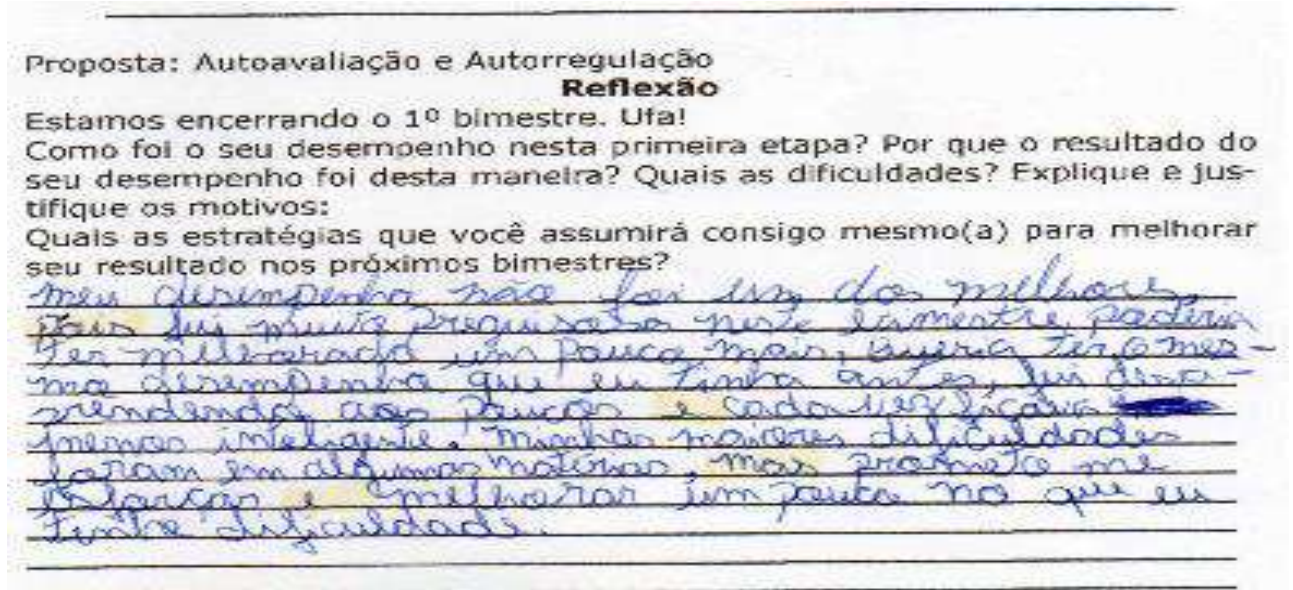 Proposta: Autoavaliação e Autorregulação
Reflexão
Estamos encerrando o 1º bimestre. Ufa!
Como foi o seu desempenho nesta primeira etapa? Por que o resultado do
seu desempenho foi desta maneira? Quais as dificuldades? Explique e jus-
tifique os motivos:
Quais as estratégias que você assumirá consigo mesmo(a) para melhorar
seu resultado nos próximos bimestres?
meu desempenho não foi um dos melhores,
pois fui muito preguisoso neste bimestre, poderia
ter melhorado um pouco mais, queria ter o mes-
mo desempenho que eu tinha antes, fui desa-
prendendo aos poucos e cada vez ficava
menos inteligente. Minhas maiores dificuldades
foram em algumas matérias, mas prometo me
esforçar e melhorar um pouco no que eu
tenho dificuldade.